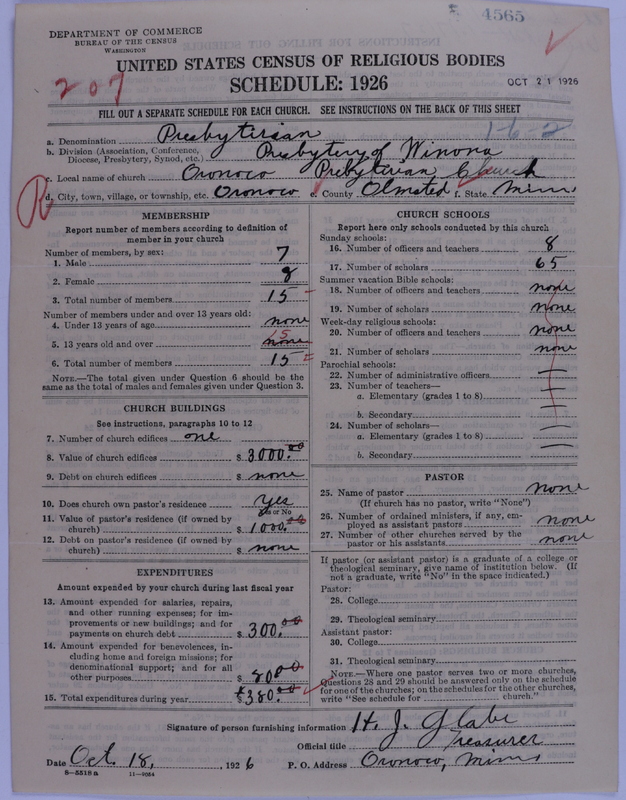 4565
DEPARTMENT OF COMMERCE
BUREAU OF THE CENSUS
WASHINGTON
UNITED STATES CENSUS OF RELIGIOUS BODIES
207
SCHEDULE: 1926
OCT 21 1926
FILL OUT A SEPARATE SCHEDULE FOR EACH CHURCH. SEE INSTRUCTIONS ON THE BACK OF THIS SHEET
1-6-2
a. Denomination Presbyterian
b. Division (Association, Conference, Diocese, Presbytery, Synod, etc.) Presbytery of Winona
c. Local name of church Oronoco Presbyterian Church
R
d. City, town, village, or township, etc. Oronoco e. County Olmsted f. State Minn
MEMBERSHIP
Report number of members according to definition of
member in your church
Number of members, by sex:
1. Male 7
2. Female 8
3. Total number of members 15
Number of members under and over 13 years old:
4. Under 13 years of age none
15
5. 13 years old and over none
6. Total number of members 15
NOTE.—The total given under Question 6 should be the
same as the total of males and females given under Question 3.
CHURCH BUILDINGS
See instructions, paragraphs 10 to 12
7. Number of church edifices one
8. Value of church edifices $ 3000.00
9. Debt on church edifices $ none
10. Does church own pastor's residence Yes
Yes or No
11. Value of pastor's residence (if owned by
church) $ 1000.00
12. Debt on pastor's residence (if owned by
church) $ none
EXPENDITURES
Amount expended by your church during last fiscal year
13. Amount expended for salaries, repairs,
and other running expenses; for im-
provements or new buildings; and for
payments on church debt $ 300.00
14. Amount expended for benevolences, in-
cluding home and foreign missions; for
denominational support; and for all
other purposes $ 80.00
15. Total expenditures during year $ 380.00
CHURCH SCHOOLS
Report here only schools conducted by this church
Sunday schools:
16. Number of officers and teachers 8
17. Number of scholars 65
Summer vacation Bible schools:
18. Number of officers and teachers none
19. Number of scholars none
Week-day religious schools:
20. Number of officers and teachers none
21. Number of scholars none
Parochial schools:
22. Number of administrative officers —
23. Number of teachers—
a. Elementary (grades 1 to 8) —
b. Secondary —
24. Number of scholars—
a. Elementary (grades 1 to 8) —
b. Secondary —
PASTOR
25. Name of pastor none
(If church has no pastor, write "None")
26. Number of ordained ministers, if any, em-
ployed as assistant pastors none
27. Number of other churches served by the
pastor or his assistants none
If pastor (or assistant pastor) is a graduate of a college or
theological seminary, give name of institution below. (If
not a graduate, write "No" in the space indicated.)
Pastor:
28. College
29. Theological seminary
Assistant pastor:
30. College
31. Theological seminary
NOTE.—Where one pastor serves two or more churches,
Questions 28 and 29 should be answered only on the schedule
for one of the churches; on the schedules for the other churches,
write "See schedule for church."
Signature of person furnishing information H. J. Glabe
Official title Treasurer
Date Oct. 18, 1926 P. O. Address Oronoco, Minn
S-5518 a 11-9054